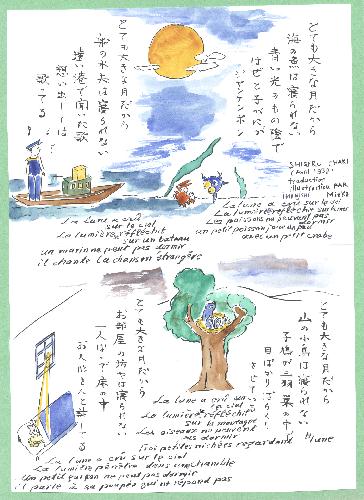 とても大きな月だから
海の魚は寝られない
青い光のもの陰で
はぜと子がにが
ジャンケンポン
とても大きな月だから
船の水夫は寝られない
遠い港で聞いた歌
想い出しては
歌ってる
traducteur
illustration PAR
La lune a crû sur le ciel
La lumière réfléchit sur la mer
Les poissons ne peuvent pas
dormir
un petit poisson joue un peu
avec un petit crabe
La lune a crû
sur le ciel
La lumière réfléchit
sur un bateau
un marin ne peut pas dormir
il chante la chanson étrangère
とても大きな月だから
山の小鳥は寝られない
子鳩が三羽巣の中
目ばかり
とても大きな月だから
お部屋の坊やは寝られない
一人ぼっち床の中
お人形さんと話してる
La lune a crû sur
le ciel
La lumière réfléchit
sur la montagne
Les oiseaux ne peuvent
pas dormir
Trois petites nichées regardent
la lune
La lune a crû sur le ciel
La lumière pénètre dans une chambre
Un petit garçon ne peut pas dormir
il parle à sa poupée qui ne répond pas